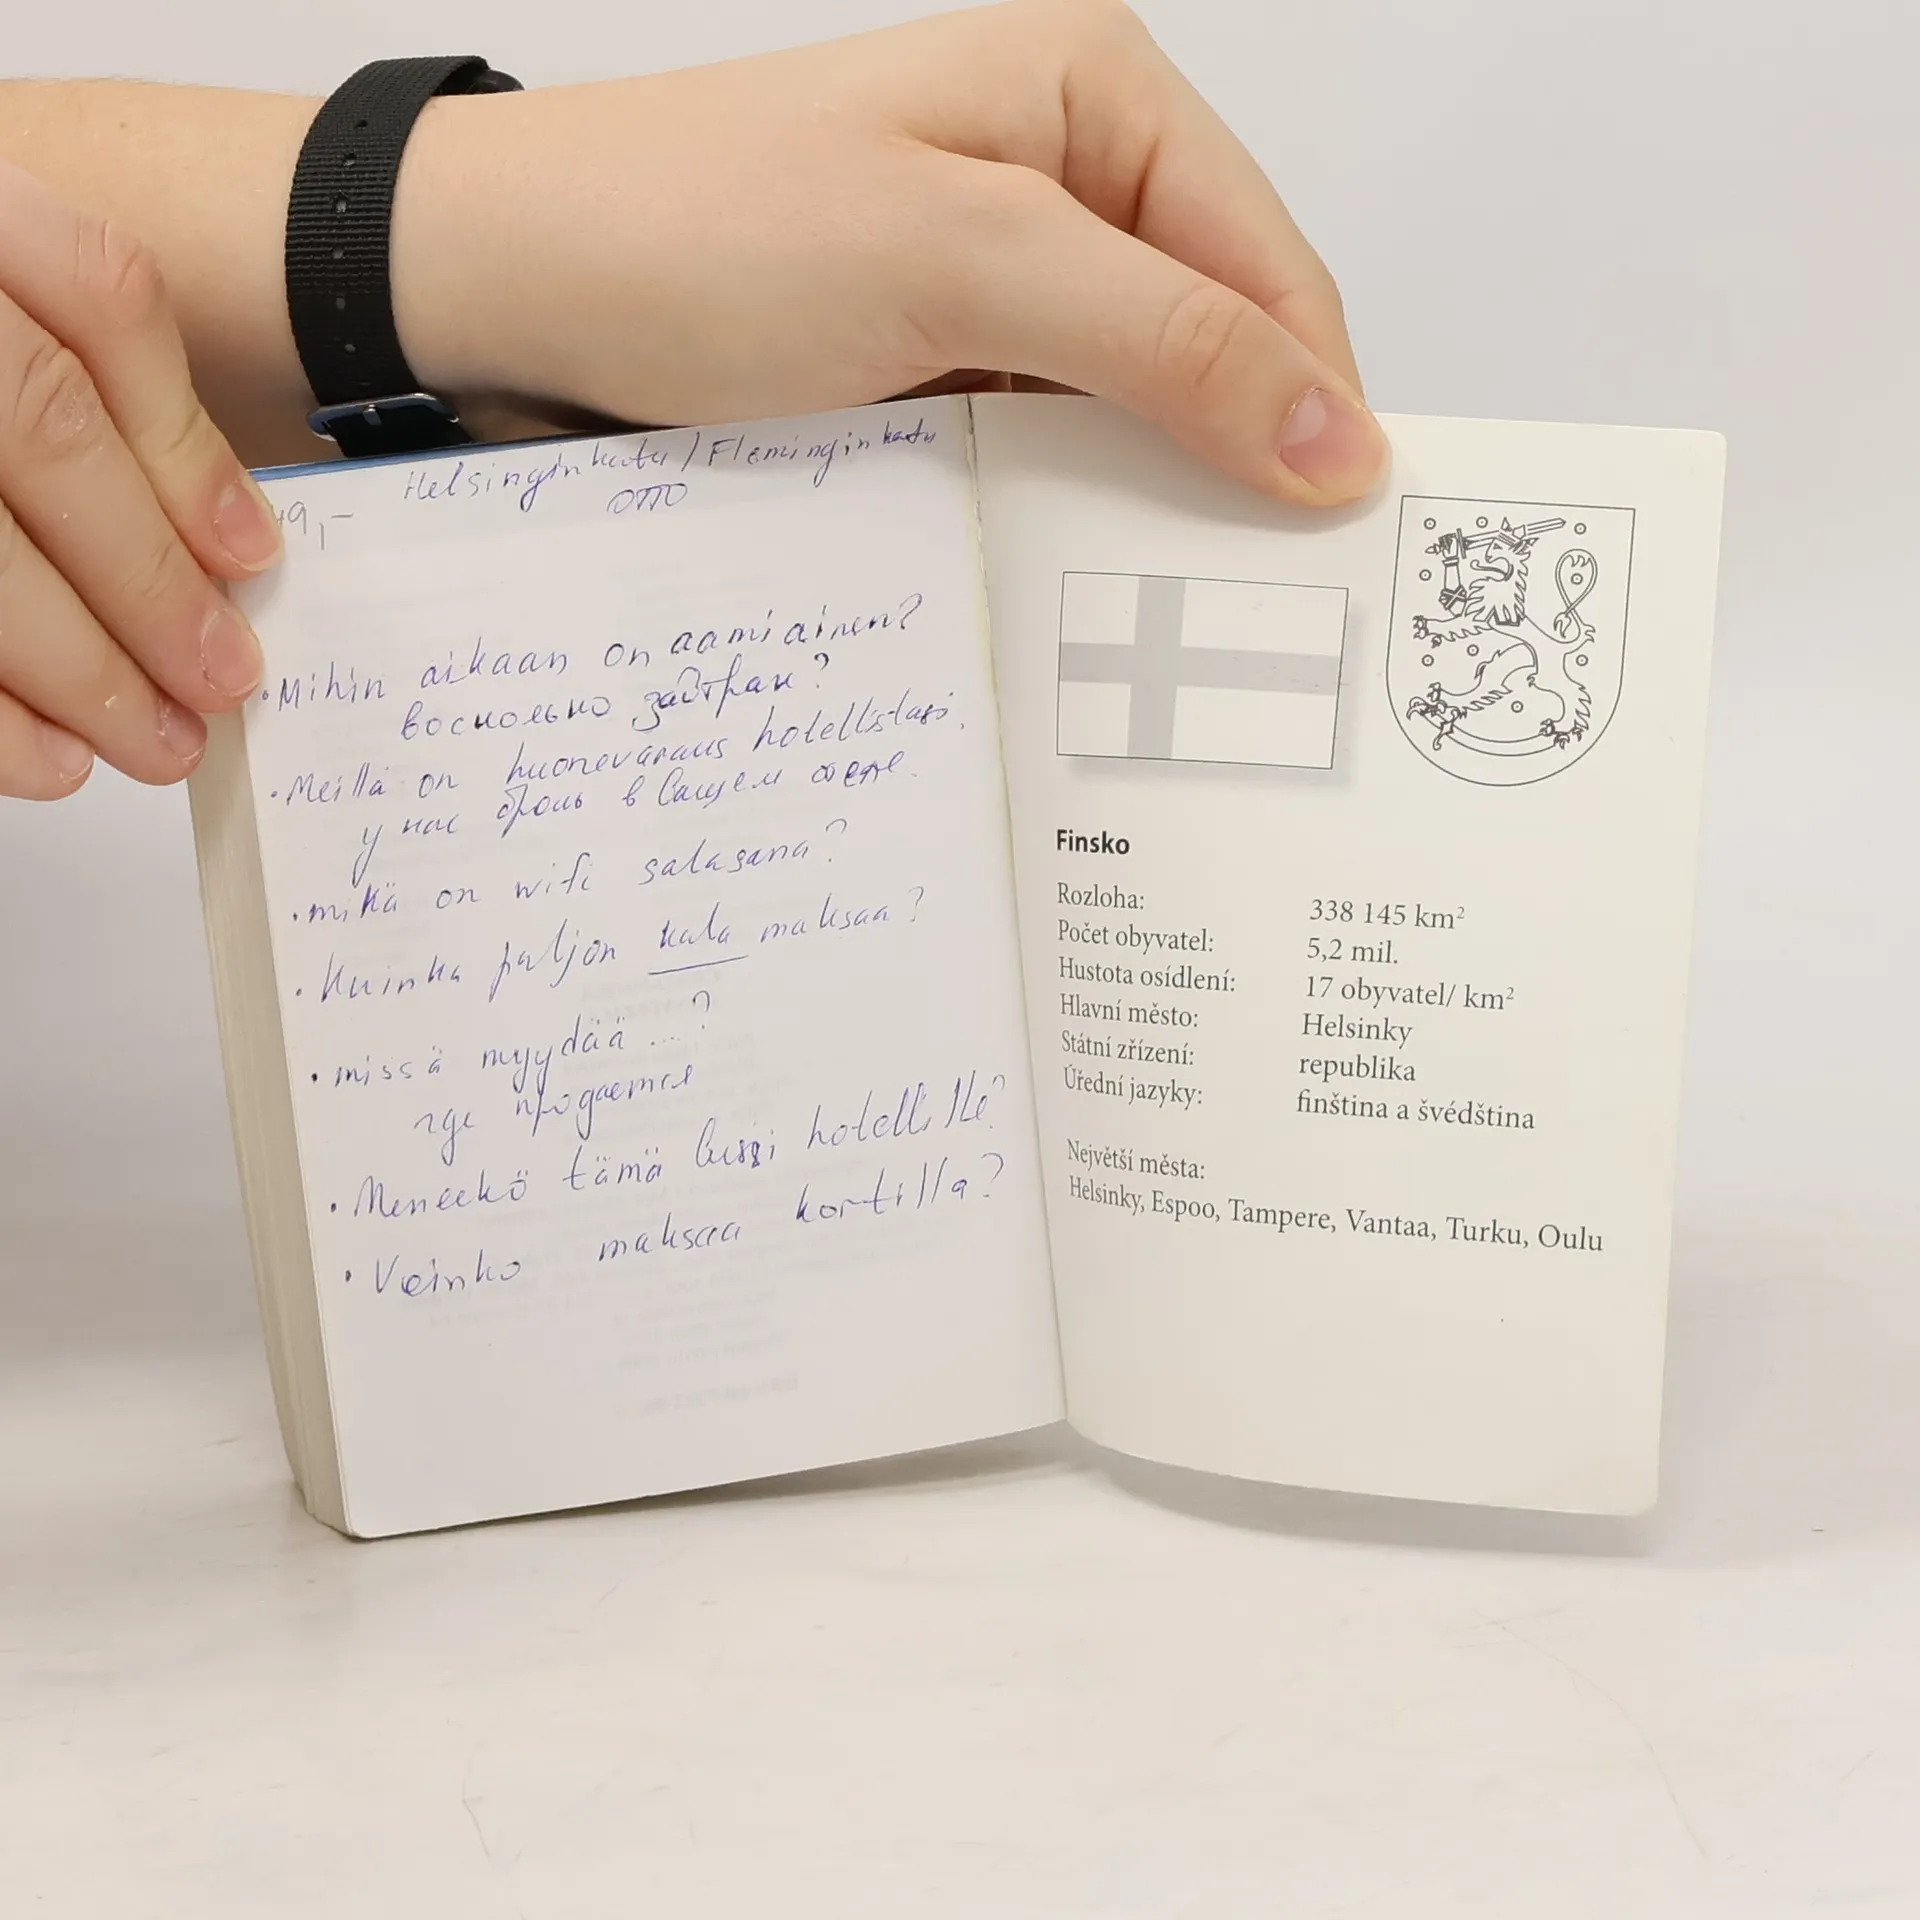 Helsinginkatu / Fleminginkatu
OTTO
49,-
• Mihin aikaan on aamiainen?
восколько завтрак?
• Meillä on huonevaraus hotellistasi.
у нас бронь в вашем отеле.
• mikä on wifi salasana?
• Kuinka paljon kala maksaa?
• missä myydää ...?
где продаемся
• Meneekö tämä bussi hotellille?
• Voinko maksaa kortilla?
Finsko
Rozloha: 338 145 km²
Počet obyvatel: 5,2 mil.
Hustota osídlení: 17 obyvatel/ km²
Hlavní město: Helsinky
Státní zřízení: republika
Úřední jazyky: finština a švédština
Největší města:
Helsinky, Espoo, Tampere, Vantaa, Turku, Oulu